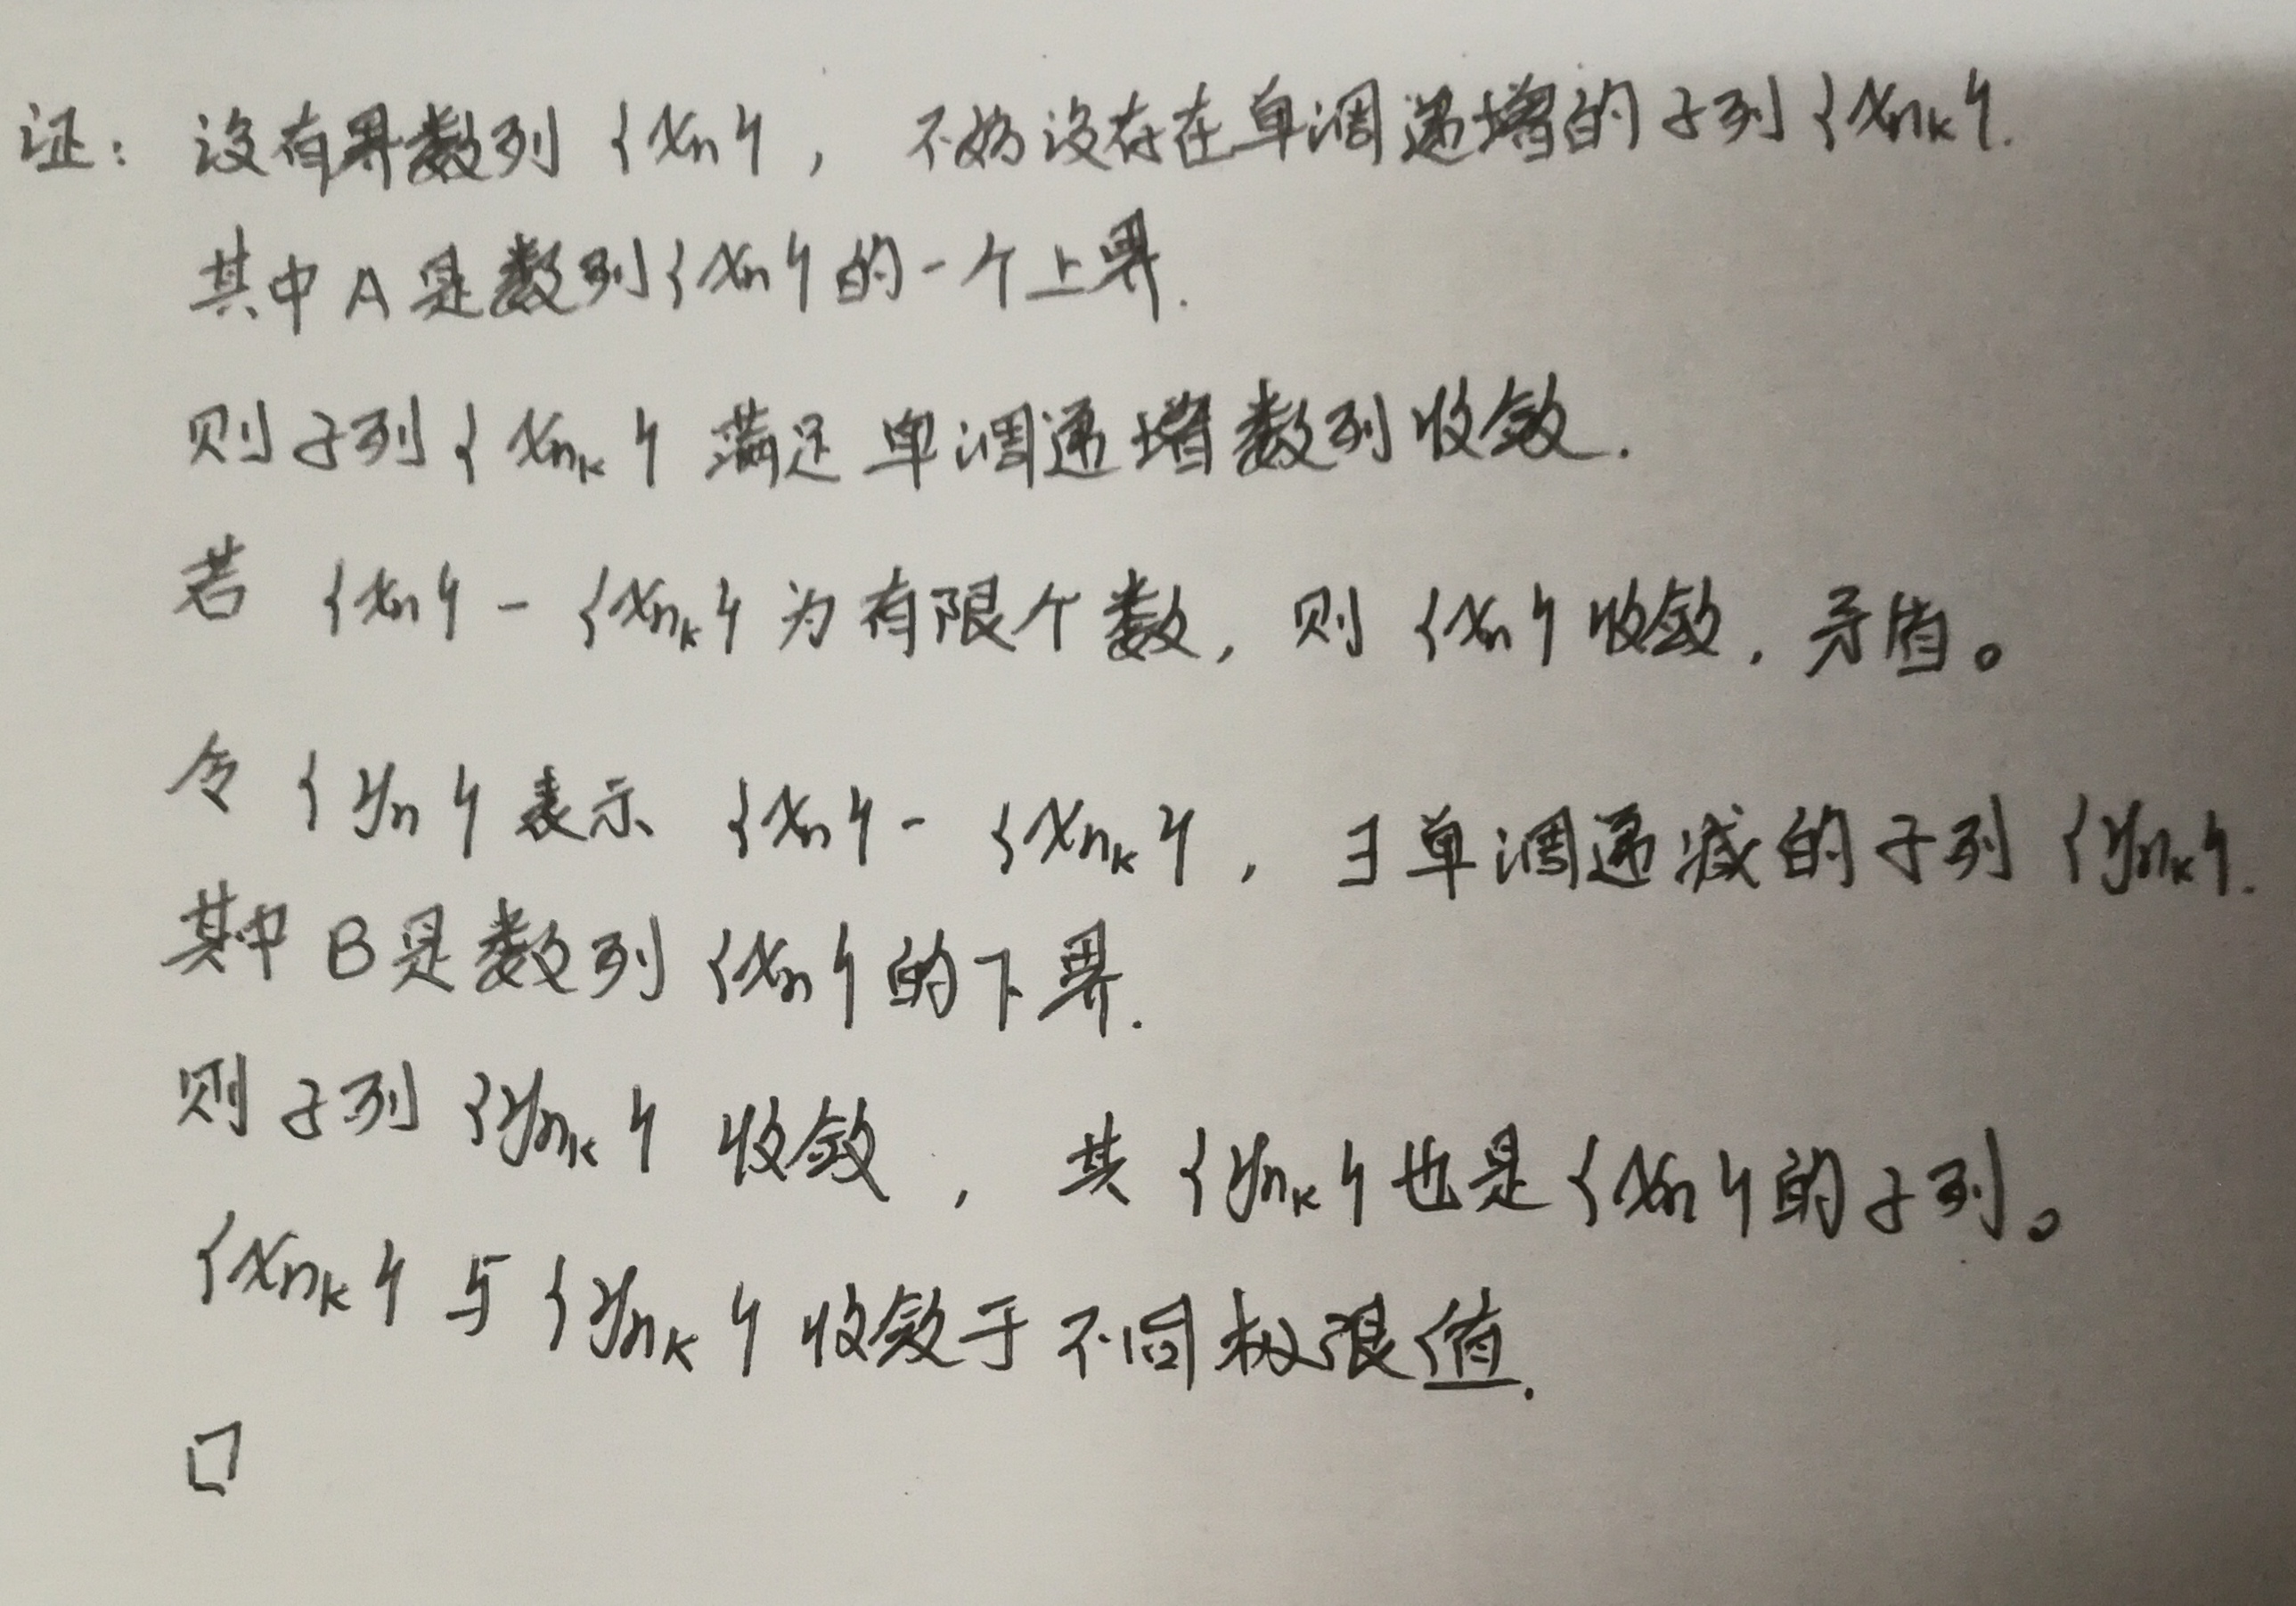 证：设有界数列 {xn}，不妨设存在单调递增的子列 {xnk}.
其中 A 是数列{xn}的一个上界.
则子列{xnk}满足单调递增数列收敛.
若 {xn} - {xnk}为有限个数，则 {xn}收敛，矛盾。
令 {yn}表示 {xn} - {xnk}，∃单调递减的子列 {ynk}.
其中 B是数列 {xn}的下界.
则子列 {ynk} 收敛，其 {ynk}也是{xn}的子列。
{xnk}与{ynk}收敛于不同极限值.
□